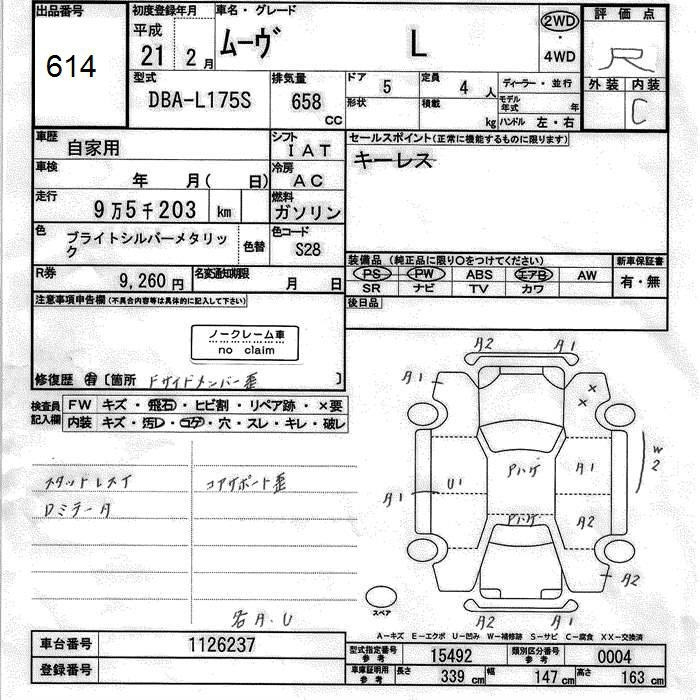 出品番号
614
初度登録年月
平成
21 年 2 月
車名・グレード
ムーヴ L
2WD
・
4WD
評価点
R
外装 内装
C
型式
DBA-L175S
排気量
658
cc
ドア 5
形状
定員 4 人
積載 kg
ディーラー・並行
モデル年式 年
ハンドル 左・右
車歴 自家用
シフト IAT
車検 年 月( 日)
冷房 AC
走行 9万5千203 km
燃料 ガソリン
色 ブライトシルバーメタリック
色替
色コード S28
R券 9,260円
名変通知期限 月 日
セールスポイント(正常に機能するものに限ります)
キーレス
装備品(純正品に限り○をつけてください)
PS PW ABS エアB AW
SR ナビ TV カワ
新車保証書
有・無
後日品
注意事項申告欄(不具合内容等は具体的に記入して下さい)
ノークレーム車
no claim
修復歴 有 〔箇所 Fサイドメンバー歪 〕
検査員記入欄
FW キズ・飛石・ヒビ割・リペア跡・×要
内装 キズ・汚レ・コゲ・穴・スレ・キレ・破レ
スタッドレスタイ
Dミラー A
コアサポート歪
各A.U
A2 A1
A1
×
×
W2
Pハゲ
A1
U1
A1
Pハゲ
A2
A2
A2 A1
スペア
A－キズ E－エクボ U－凹み W－補修跡 S－サビ C－腐食 XX－交換済
車台番号 1126237
登録番号
型式指定番号 参考 15492
類別区分番号 参考 0004
車庫証明用 参考 長さ 339 cm 幅 147 cm 高さ 163 cm